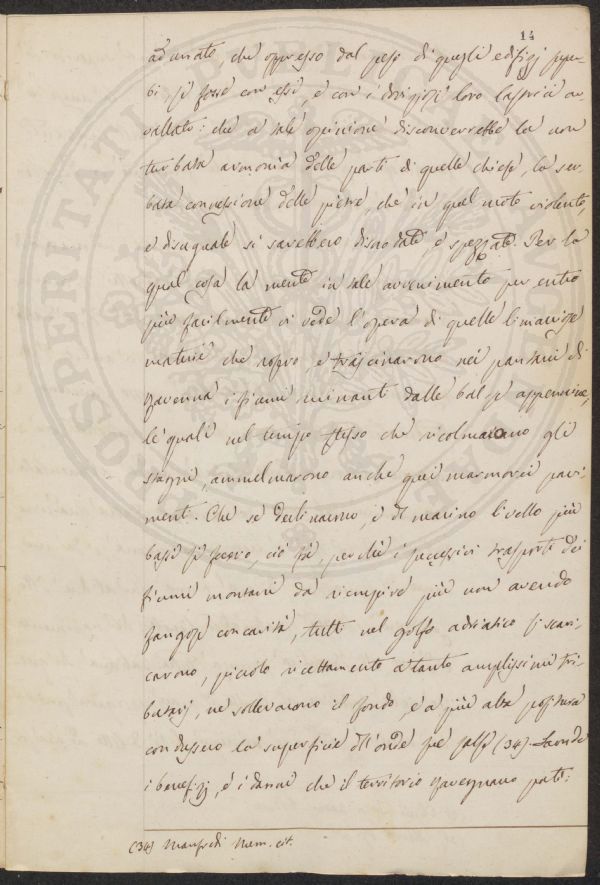 14
adunato, che oppresso dal peso di quegli edifizj super-
bi si fosse con essi, e con i dovigiosi loro lastrici av-
vallato: che a tale opinione disconverrebbe la non
turbata armonia delle parti di quelle chiese, la ser-
bata connessione delle pietre, che in quel moto violento,
e disuguale si sarebbero disnodate, e spezzate. Per la
qual cosa la mente in tale avvenimento per entro
più facilmente vi vede l'opera di quelle limacciose
materie che sopra, e trascinarono nei pantani di
Ravenna i fiumi ruinanti dalle balze appennine,
le quali nel tempo stesso che ricolmarono gli
stagni, ammelmarono anche quei marmorei pavi-
menti. Che se declinarono, e di marino livello più
bassi si fecero, ciò fù, perchè i successivi trasporti dei
fiumi montani da riempire più non avendo
fangose concavità, tutti nel golfo adriatico si scari-
carono, piccolo ricettamento a tanto amplissimi tri-
butarj, ne sollevarono il fondo, e a più alta positura
condussero la superficie dell'onde sue salse (34). Laonde
i benefizj, e i danni che il territorio Ravegnano patì:
(34) Manfredi Mem. cit.
PROSPERITATI PUBLICAE